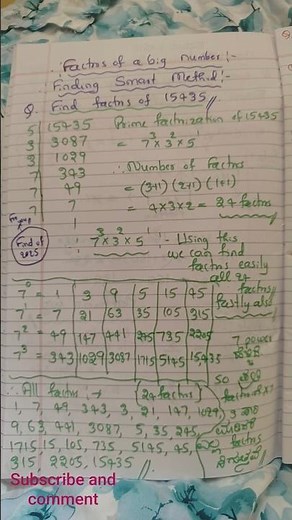 Factors of a big number :-
Finding Smart Method :-
Q. Find factors of 15435 //
5 | 15435 Prime factorization of 15435
3 | 3087 = 7³ × 3² × 5¹
3 | 1029
7 | 343 ∴ Number of Factors
7 | 49 = (3+1) (2+1) (1+1)
7 | 7 = 4×3×2 = 24 factors
1
Find of 2025
7³ × 3² × 5¹ :- Using this
we can find
factors easily
all 24
factors
easily also
7⁰ = 1 | 3 | 9 | 5 | 15 | 45
7¹ = 7 | 21 | 63 | 35 | 105 | 315
7² = 49 | 147 | 441 | 245 | 735 | 2205
7³ = 343 | 1029 | 3087 | 1715 | 5145 | 15435
7 power
∴ All factors :→ (24 factors)
so
1, 7, 49, 343, 3, 21, 147, 1029,
9, 63, 441, 3087, 5, 35, 245,
1715, 15, 105, 735, 5145, 45, factors
315, 2205, 15435 //
Subscribe and
comment